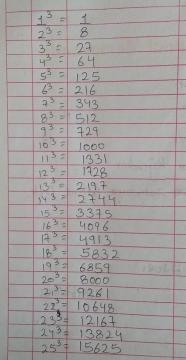 1³ = 1
2³ = 8
3³ = 27
4³ = 64
5³ = 125
6³ = 216
7³ = 343
8³ = 512
9³ = 729
10³ = 1000
11³ = 1331
12³ = 1728
13³ = 2197
14³ = 2744
15³ = 3375
16³ = 4096
17³ = 4913
18³ = 5832
19³ = 6859
20³ = 8000
21³ = 9261
22³ = 10648
23³ = 12167
24³ = 13824
25³ = 15625